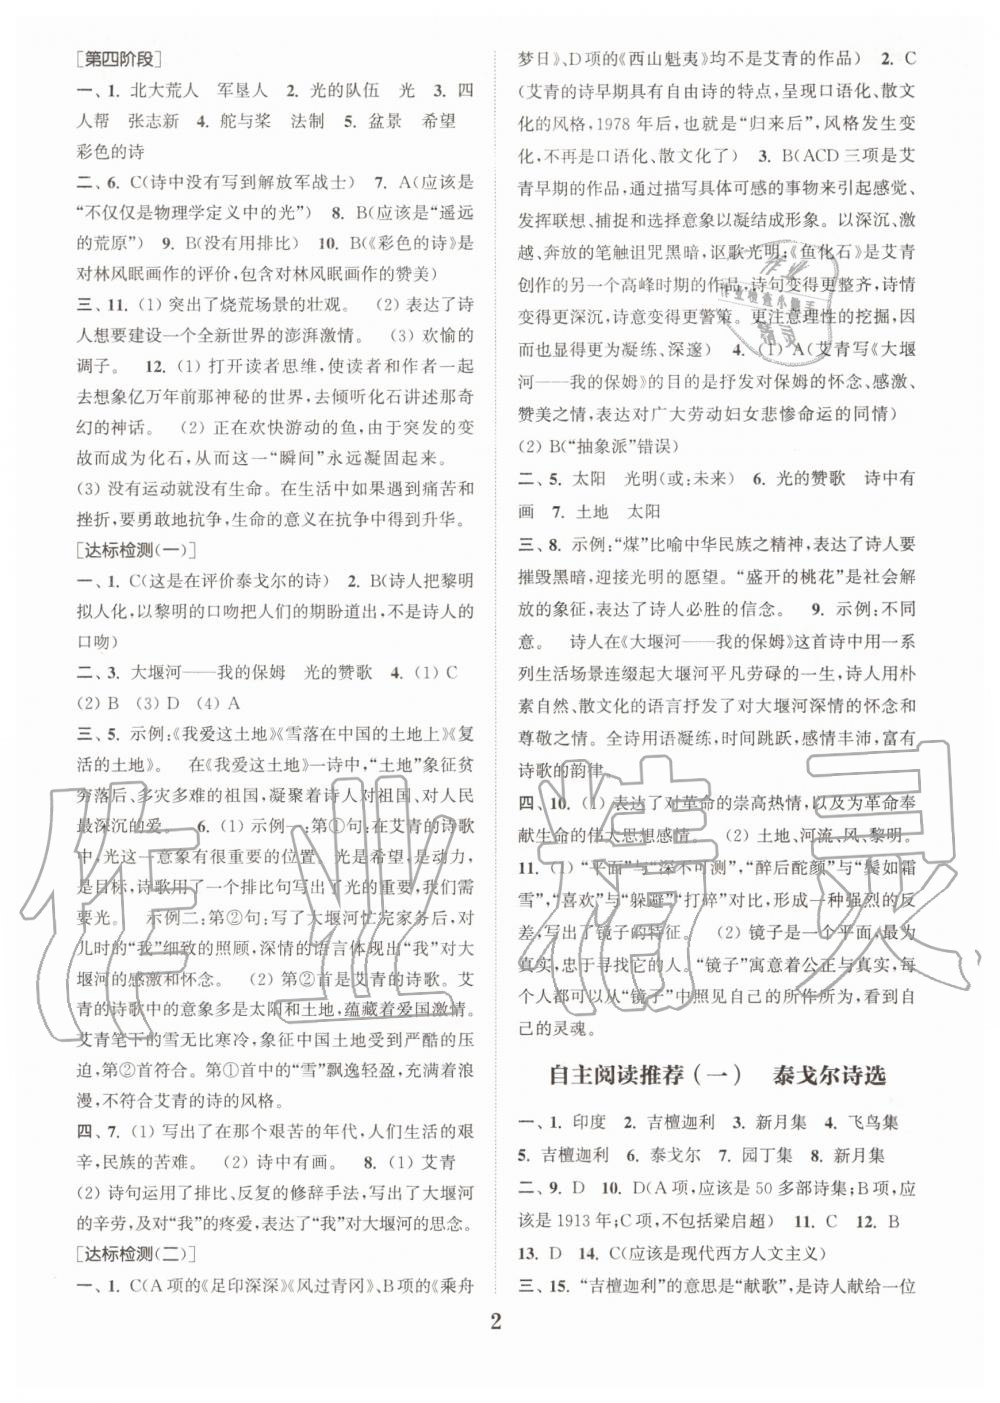 [第四阶段]
一、1. 北大荒人　军垦人　2. 光的队伍　光　3. 四
人帮　张志新　4. 舵与桨　法制　5. 盆景　希望
彩色的诗
二、6. C(诗中没有写到解放军战士)　7. A(应该是
“不仅仅是物理学定义中的光”)　8. B(应该是“遥远
的荒原”)　9. B(没有用排比)　10. B(《彩色的诗》是
对林风眠画作的评价,包含对林风眠画作的赞美)
三、11. (1) 突出了烧荒场景的壮观。　(2) 表达了诗
人想要建设一个全新世界的澎湃激情。　(3) 欢愉的
调子。　12. (1) 打开读者思维,使读者和作者一起
去想象亿万年前那神秘的世界,去倾听化石讲述那奇
幻的神话。　(2) 正在欢快游动的鱼,由于突发的变
故而成为化石,从而这一“瞬间”永远凝固起来。
(3) 没有运动就没有生命。在生活中如果遇到痛苦和
挫折,要勇敢地抗争,生命的意义在抗争中得到升华。
[达标检测(一)]
一、1. C(这是在评价泰戈尔的诗)　2. B(诗人把黎明
拟人化,以黎明的口吻把人们的期盼道出,不是诗人的
口吻)
二、3. 大堰河——我的保姆　光的赞歌　4. (1) C
(2) B　(3) D　(4) A
三、5. 示例:《我爱这土地》《雪落在中国的土地上》《复
活的土地》。　在《我爱这土地》一诗中,“土地”象征贫
穷落后、多灾多难的祖国,凝聚着诗人对祖国、对人民
最深沉的爱。　6. (1) 示例一:第①句:在艾青的诗歌
中,光这一意象有很重要的位置。光是希望,是动力,
是目标,诗歌用了一个排比句写出了光的重要,我们需
要光。　示例二:第②句:写了大堰河忙完家务后,对
儿时的“我”细致的照顾,深情的语言体现出“我”对大
堰河的感激和怀念。　(2) 第②首是艾青的诗歌。艾
青的诗歌中的意象多是太阳和土地,蕴藏着爱国激情。
艾青笔下的雪无比寒冷,象征中国土地受到严酷的压
迫,第②首符合。第①首中的“雪”飘逸轻盈,充满浪
漫,不符合艾青的诗的风格。
四、7. (1) 写出了在那个艰苦的年代,人们生活的艰
辛,民族的苦难。　(2) 诗中有画。　8. (1) 艾青
(2) 诗句运用了排比、反复的修辞手法,写出了大堰河
的辛劳,及对“我”的疼爱,表达了“我”对大堰河的思念。
[达标检测(二)]
一、1. C(A项的《足印深深》《风过青冈》、B项的《乘舟
梦日》、D项的《西山魁夷》均不是艾青的作品)　2. C
(艾青的诗早期具有自由诗的特点,呈现口语化、散文
化的风格,1978 年后,也就是“归来后”,风格发生变
化,不再是口语化、散文化了)　3. B(ACD三项是艾
青早期的作品,通过描写具体可感的事物来引起感觉、
发挥联想、捕捉和选择意象以凝结成形象。以深沉、激
越、奔放的笔触诅咒黑暗,讴歌光明;《鱼化石》是艾青
创作的另一个高峰时期的作品,诗句变得更整齐,诗情
变得更深沉,诗意变得更警策。更注意理性的挖掘,因
而也显得更为凝练、深邃)　4. (1) A(艾青写《大堰
河——我的保姆》的目的是抒发对保姆的怀念、感激、
赞美之情,表达对广大劳动妇女悲惨命运的同情)
(2) B(“抽象派”错误)
二、5. 太阳　光明(或:未来)　6. 光的赞歌　诗中有
画　7. 土地　太阳
三、8. 示例:“煤”比喻中华民族之精神,表达了诗人要
摧毁黑暗,迎接光明的愿望。“盛开的桃花”是社会解
放的象征,表达了诗人必胜的信念。　9. 示例:不同
意。　诗人在《大堰河——我的保姆》这首诗中用一系
列生活场景连缀起大堰河平凡劳碌的一生,诗人用朴
素自然、散文化的语言抒发了对大堰河深情的怀念和
尊敬之情。全诗用语凝练,时间跳跃,感情丰沛,富有
诗歌的韵律。
四、10. (1) 表达了对革命的崇高热情,以及为革命奉
献生命的伟大思想感情。　(2) 土地、河流、风、黎明。
11. (1) “平面”与“深不可测”,“醉后酡颜”与“鬓如霜
雪”,“喜欢”与“躲避”“打碎”对比,形成一种强烈的反
差,写出了镜子的特征。　(2) 镜子是一个平面,最为
真实,忠于寻找它的人。“镜子”寓意着公正与真实,每
个人都可以从“镜子”中照见自己的所作所为,看到自
己的灵魂。
自主阅读推荐(一)　泰戈尔诗选
一、1. 印度　2. 吉檀迦利　3. 新月集　4. 飞鸟集
5. 吉檀迦利　6. 泰戈尔　7. 园丁集　8. 新月集
二、9. D　10. D(A项,应该是50多部诗集;B项,应
该是1913年;C项,不包括梁启超)　11. C　12. B
13. D　14. C(应该是现代西方人文主义)
三、15. “吉檀迦利”的意思是“献歌”,是诗人献给一位
2
作业精灵
作业
作业检查小助手
精灵